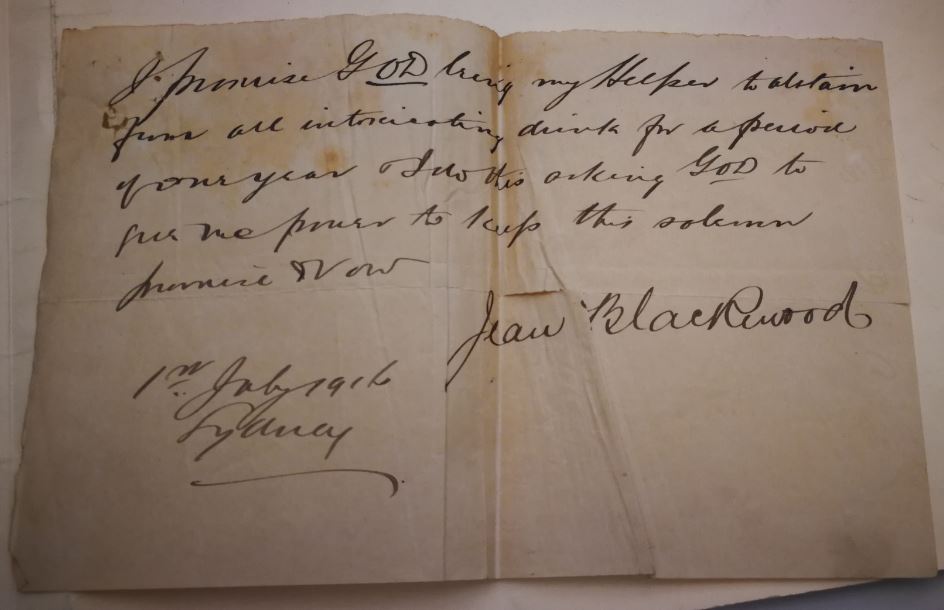 I promise GOD being my Helper to abstain
from all intoxicating drink for a period
of one year I do this asking GOD to
give me power to keep this solemn
promise & Vow
Jean Blackwood
1st July 1916
Sydney